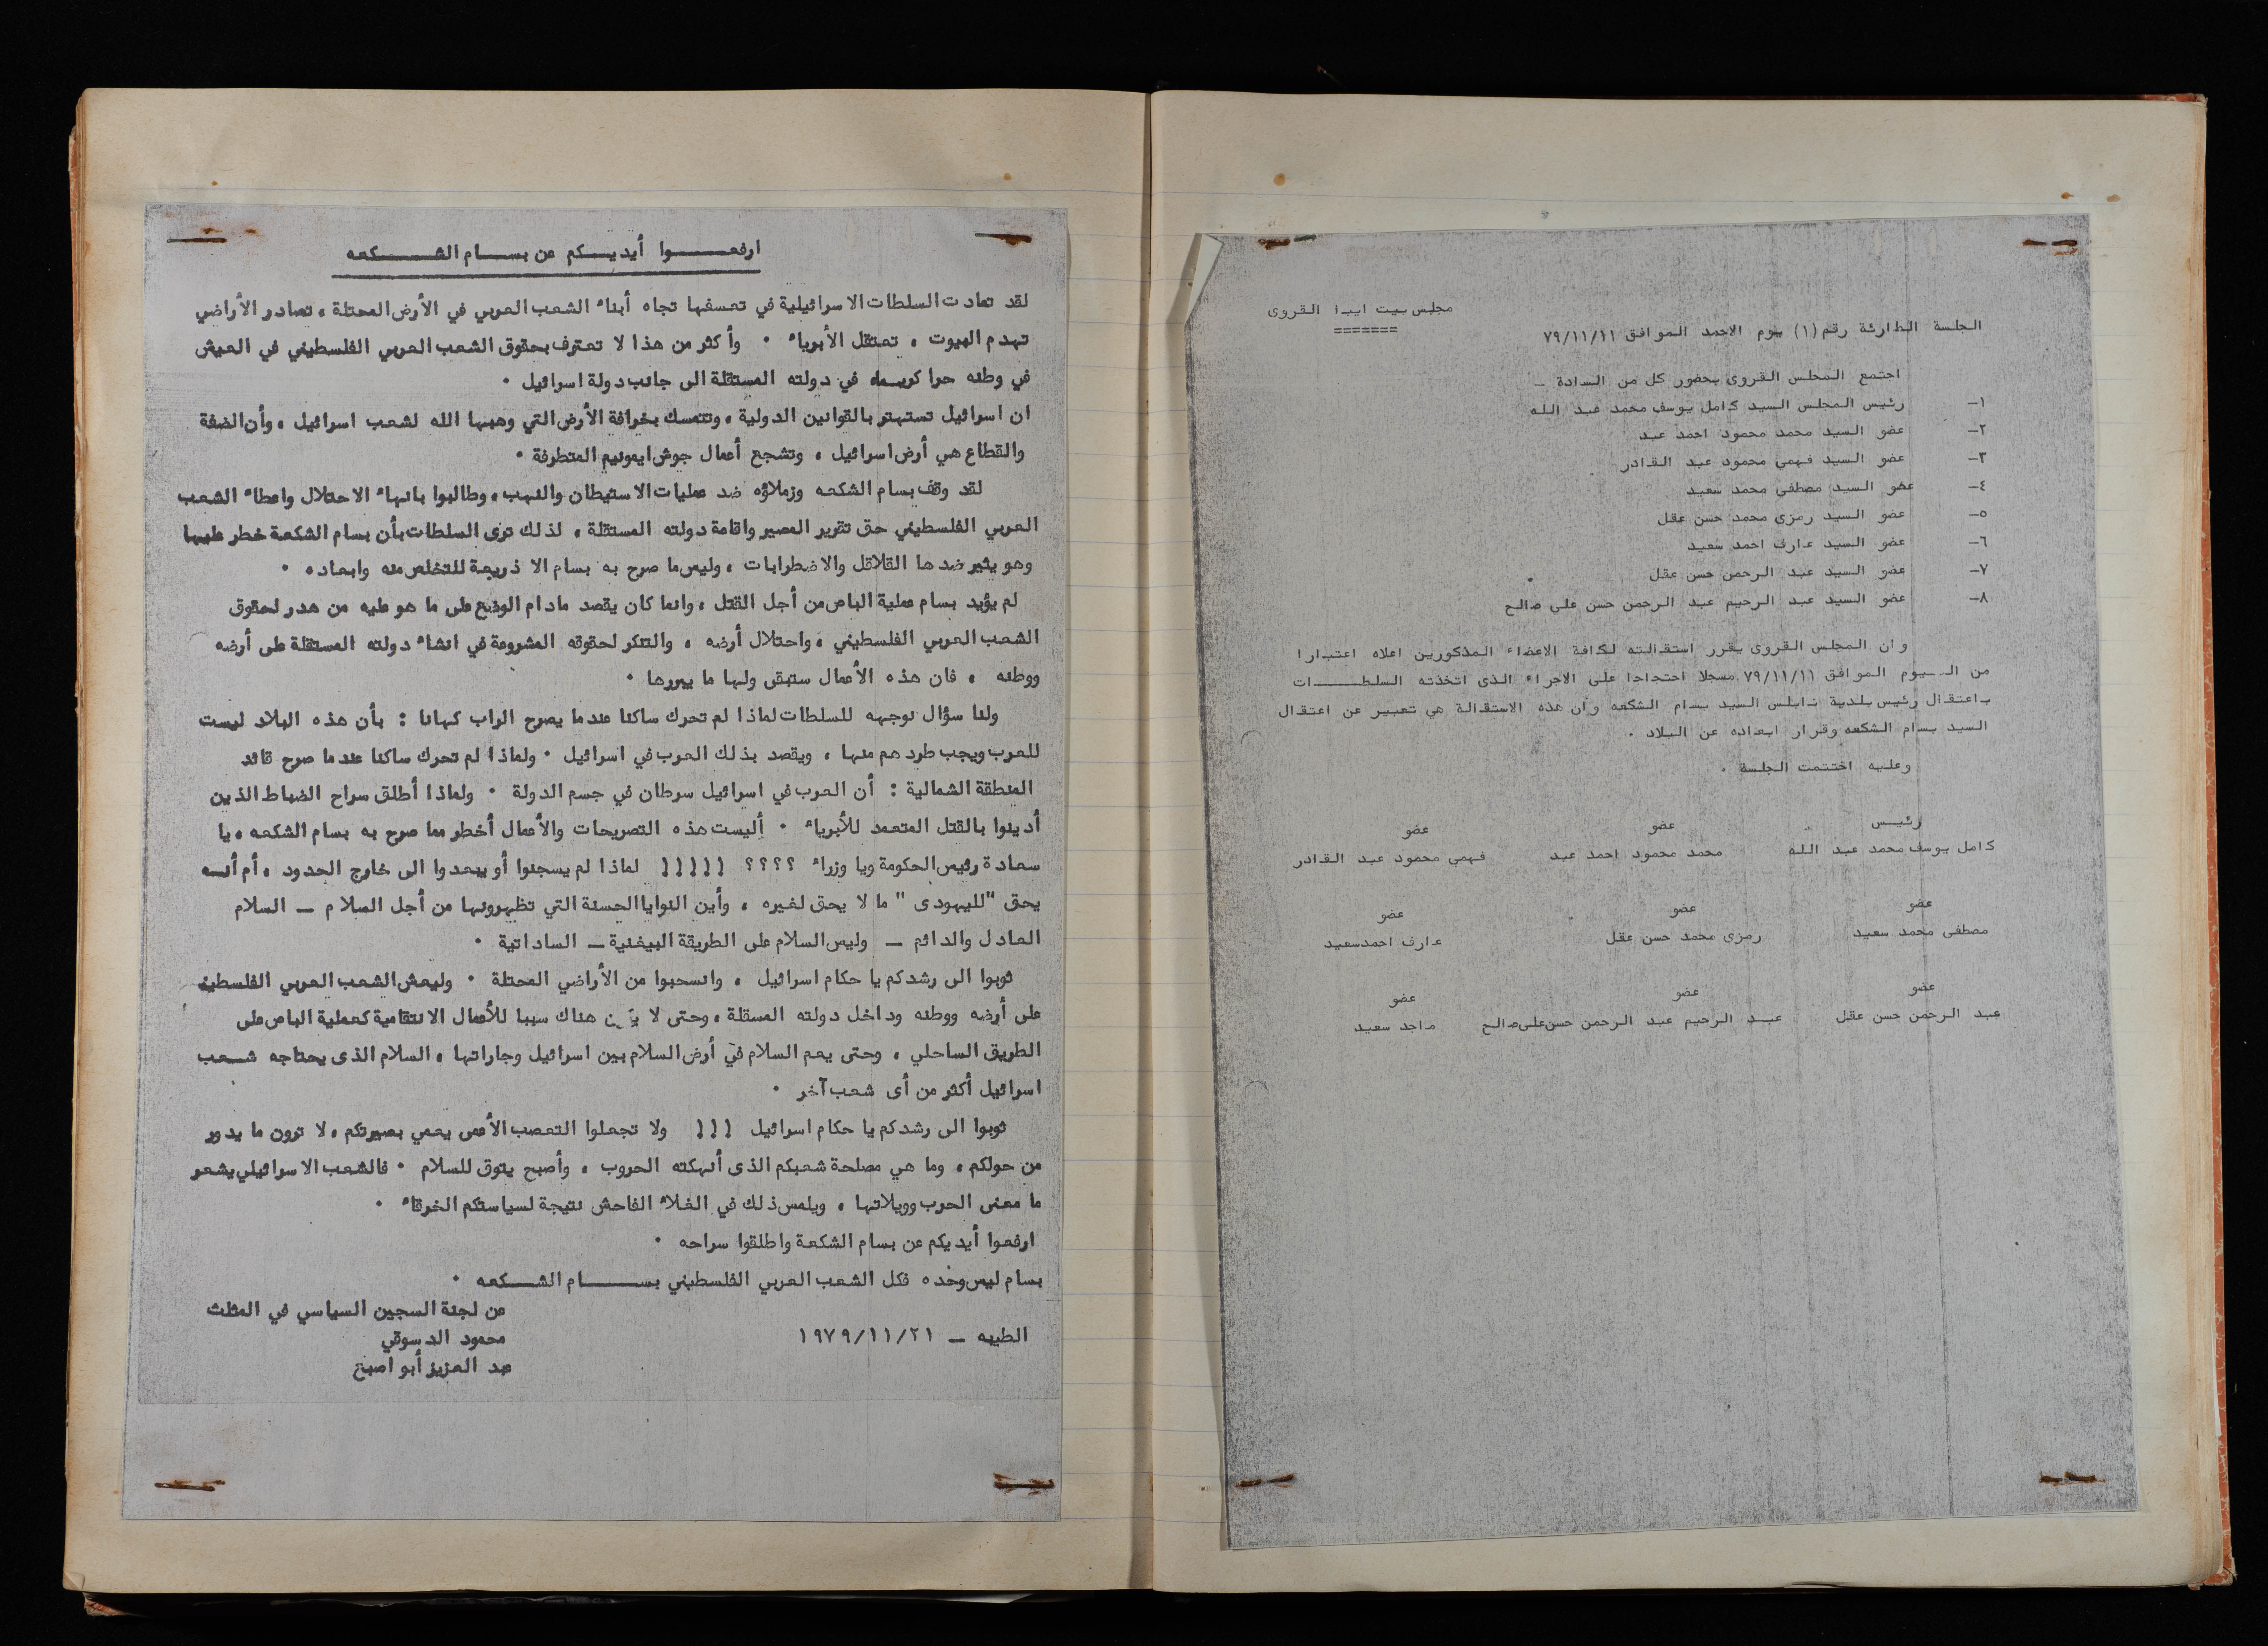 مجلس بيت ايبا القروى
=======
الجلسة الطارئة رقم (١) يوم الاحد الموافق ٧٩/١١/١١
اجتمع المجلس القروى بحضور كل من السادة _
١- رئيس المجلس السيد كامل يوسف محمد عبد الله
٢- عضو السيد محمد محمود احمد عبد
٣- عضو السيد فهمي محمود عبد القادر
٤- عضو السيد مصطفى محمد سعيد
٥- عضو السيد رمزى محمد حسن عقل
٦- عضو السيد عارف احمد سعيد
٧- عضو السيد عبد الرحمن حسن عقل
٨- عضو السيد عبد الرحيم عبد الرحمن حسن علي صالح
وان المجلس القروى يقرر استقالته لكافة الاعضاء المذكورين اعلاه اعتبارا
من اليوم الموافق ٧٩/١١/١١ مسجلا احتجاجا على الاجراء الذى اتخذته السلطـــات
باعتقال رئيس بلدية نابلس السيد بسام الشكعه وان هذه الاستقالة هي تعبير عن اعتقال
السيد بسام الشكعه وقرار ابعاده عن البلاد .
وعليه اختتمت الجلسة .
رئيس عضو عضو
كامل يوسف محمد عبد الله محمد محمود احمد عبد فهمي محمود عبد القادر
عضو عضو عضو
مصطفى محمد سعيد رمزى محمد حسن عقل عارف احمد سعيد
عضو عضو عضو
عبد الرحمن حسن عقل عبد الرحيم عبد الرحمن حسن علي صالح ماجد سعيد
ارفعـــوا أيديـــكم عن بســـام الشـــكعه
لقد تمادت السلطات الاسرائيلية في تعسفها تجاه أبناء الشعب العربي في الأرض المحتلة ، تصادر الأراضي
تهدم البيوت ، تعتقل الأبرياء . وأكثر من هذا لا تعترف بحقوق الشعب العربي الفلسطيني في العيش
في وطنه حرا كريما في دولته المستقلة الى جانب دولة اسرائيل .
ان اسرائيل تستهتر بالقوانين الدولية ، وتتمسك بخرافة الأرض التي وهبها الله لشعب اسرائيل ، وأن الضفة
والقطاع هي أرض اسرائيل ، وتشجع أعمال جوش ايمونيم المتطرفة .
لقد وقف بسام الشكعه وزملاؤه ضد عمليات الاستيطان والنهب ، وطالبوا بانهاء الاحتلال واعطاء الشعب
العربي الفلسطيني حق تقرير المصير واقامة دولته المستقلة ، لذلك ترى السلطات بأن بسام الشكعة خطر عليها
وهو يثير ضدها القلاقل والاضطرابات ، وليس ما صرح به بسام الا ذريعة للتخلص منه وابعاده .
لم يؤيد بسام عملية الباص من أجل القتل ، وانما كان يقصد مادام الوضع على ما هو عليه من هدر لحقوق
الشعب العربي الفلسطيني ، واحتلال أرضه ، والتنكر لحقوقه المشروعة في انشاء دولته المستقلة على أرضه
ووطنه ، فان هذه الأعمال ستبقى ولها ما يبررها .
ولنا سؤال نوجهه للسلطات لماذا لم تحرك ساكنا عندما يصرح الراب كهانا : بأن هذه البلاد ليست
للعرب ويجب طردهم منها ، ويقصد بذلك العرب في اسرائيل . ولماذا لم تحرك ساكنا عندما صرح قائد
المنطقة الشمالية : أن العرب في اسرائيل سرطان في جسم الدولة . ولماذا أطلق سراح الضباط الذين
أدينوا بالقتل المتعمد للأبرياء . أليست هذه التصريحات والأعمال أخطر مما صرح به بسام الشكعه ، يا
سعادة رئيس الحكومة ويا وزراء ؟؟؟؟ !!!!! لماذا لم يسجنوا أو يبعدوا الى خارج الحدود ، أم أنــه
يحق "لليهودى " ما لا يحق لغيره ، وأين النوايا الحسنة التي تظهرونها من أجل السلام _ السلام
العادل والدائم _ وليس السلام على الطريقة البيغنية _ الساداتية .
ثوبوا الى رشدكم يا حكام اسرائيل ، وانسحبوا من الأراضي المحتلة . وليعش الشعب العربي الفلسطيني
على أرضه ووطنه وداخل دولته المسقلة ، وحتى لا هناك سببا للأعمال الانتقامية كعملية الباص على
الطريق الساحلي ، وحتى يعم السلام في أرض السلام بين اسرائيل وجاراتها ، السلام الذى يحتاجه شـــعب
اسرائيل أكثر من أى شعب آخر .
ثوبوا الى رشدكم يا حكام اسرائيل !!! ولا تجعلوا التعصب الأعمى يعمي بصيرتكم ، لا ترون ما يدور
من حولكم ، وما هي مصلحة شعبكم الذى أنهكته الحروب ، وأصبح يتوق للسلام . فالشعب الاسرائيلي يشعر
ما معنى الحرب وويلاتها ، ويلمس ذلك في الغلاء الفاحش نتيجة لسياستكم الخرقاء .
ارفعوا أيديكم عن بسام الشكعة واطلقوا سراحه .
بسام ليس وحده فكل الشعب العربي الفلسطيني بســـام الشـــكعه .
عن لجنة السجين السياسي في المثلث
الطيبه _ ١٩٧٩/١١/٢١ محمود الدسوقي
عبد العزيز أبو اصبع